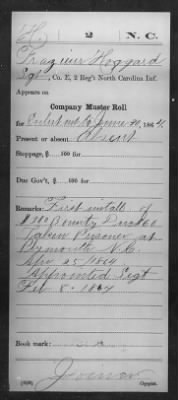 H | 2 | N. C.
Frazinier Hoggard
Sgt, Co. E, 2 Reg't North Carolina Inf.
Appears on
Company Muster Roll
for Enlistmt to June 30, 1864.
Present or absent Absent
Stoppage, $ 100 for
Due Gov't, $ 100 for
Remarks: First install of
Bounty Due $60
Taken Prisoner at
Plymouth N.C.
Apr 25 1864
Appointed Sergt
Feb 8 1864
Book mark:
Copyist.